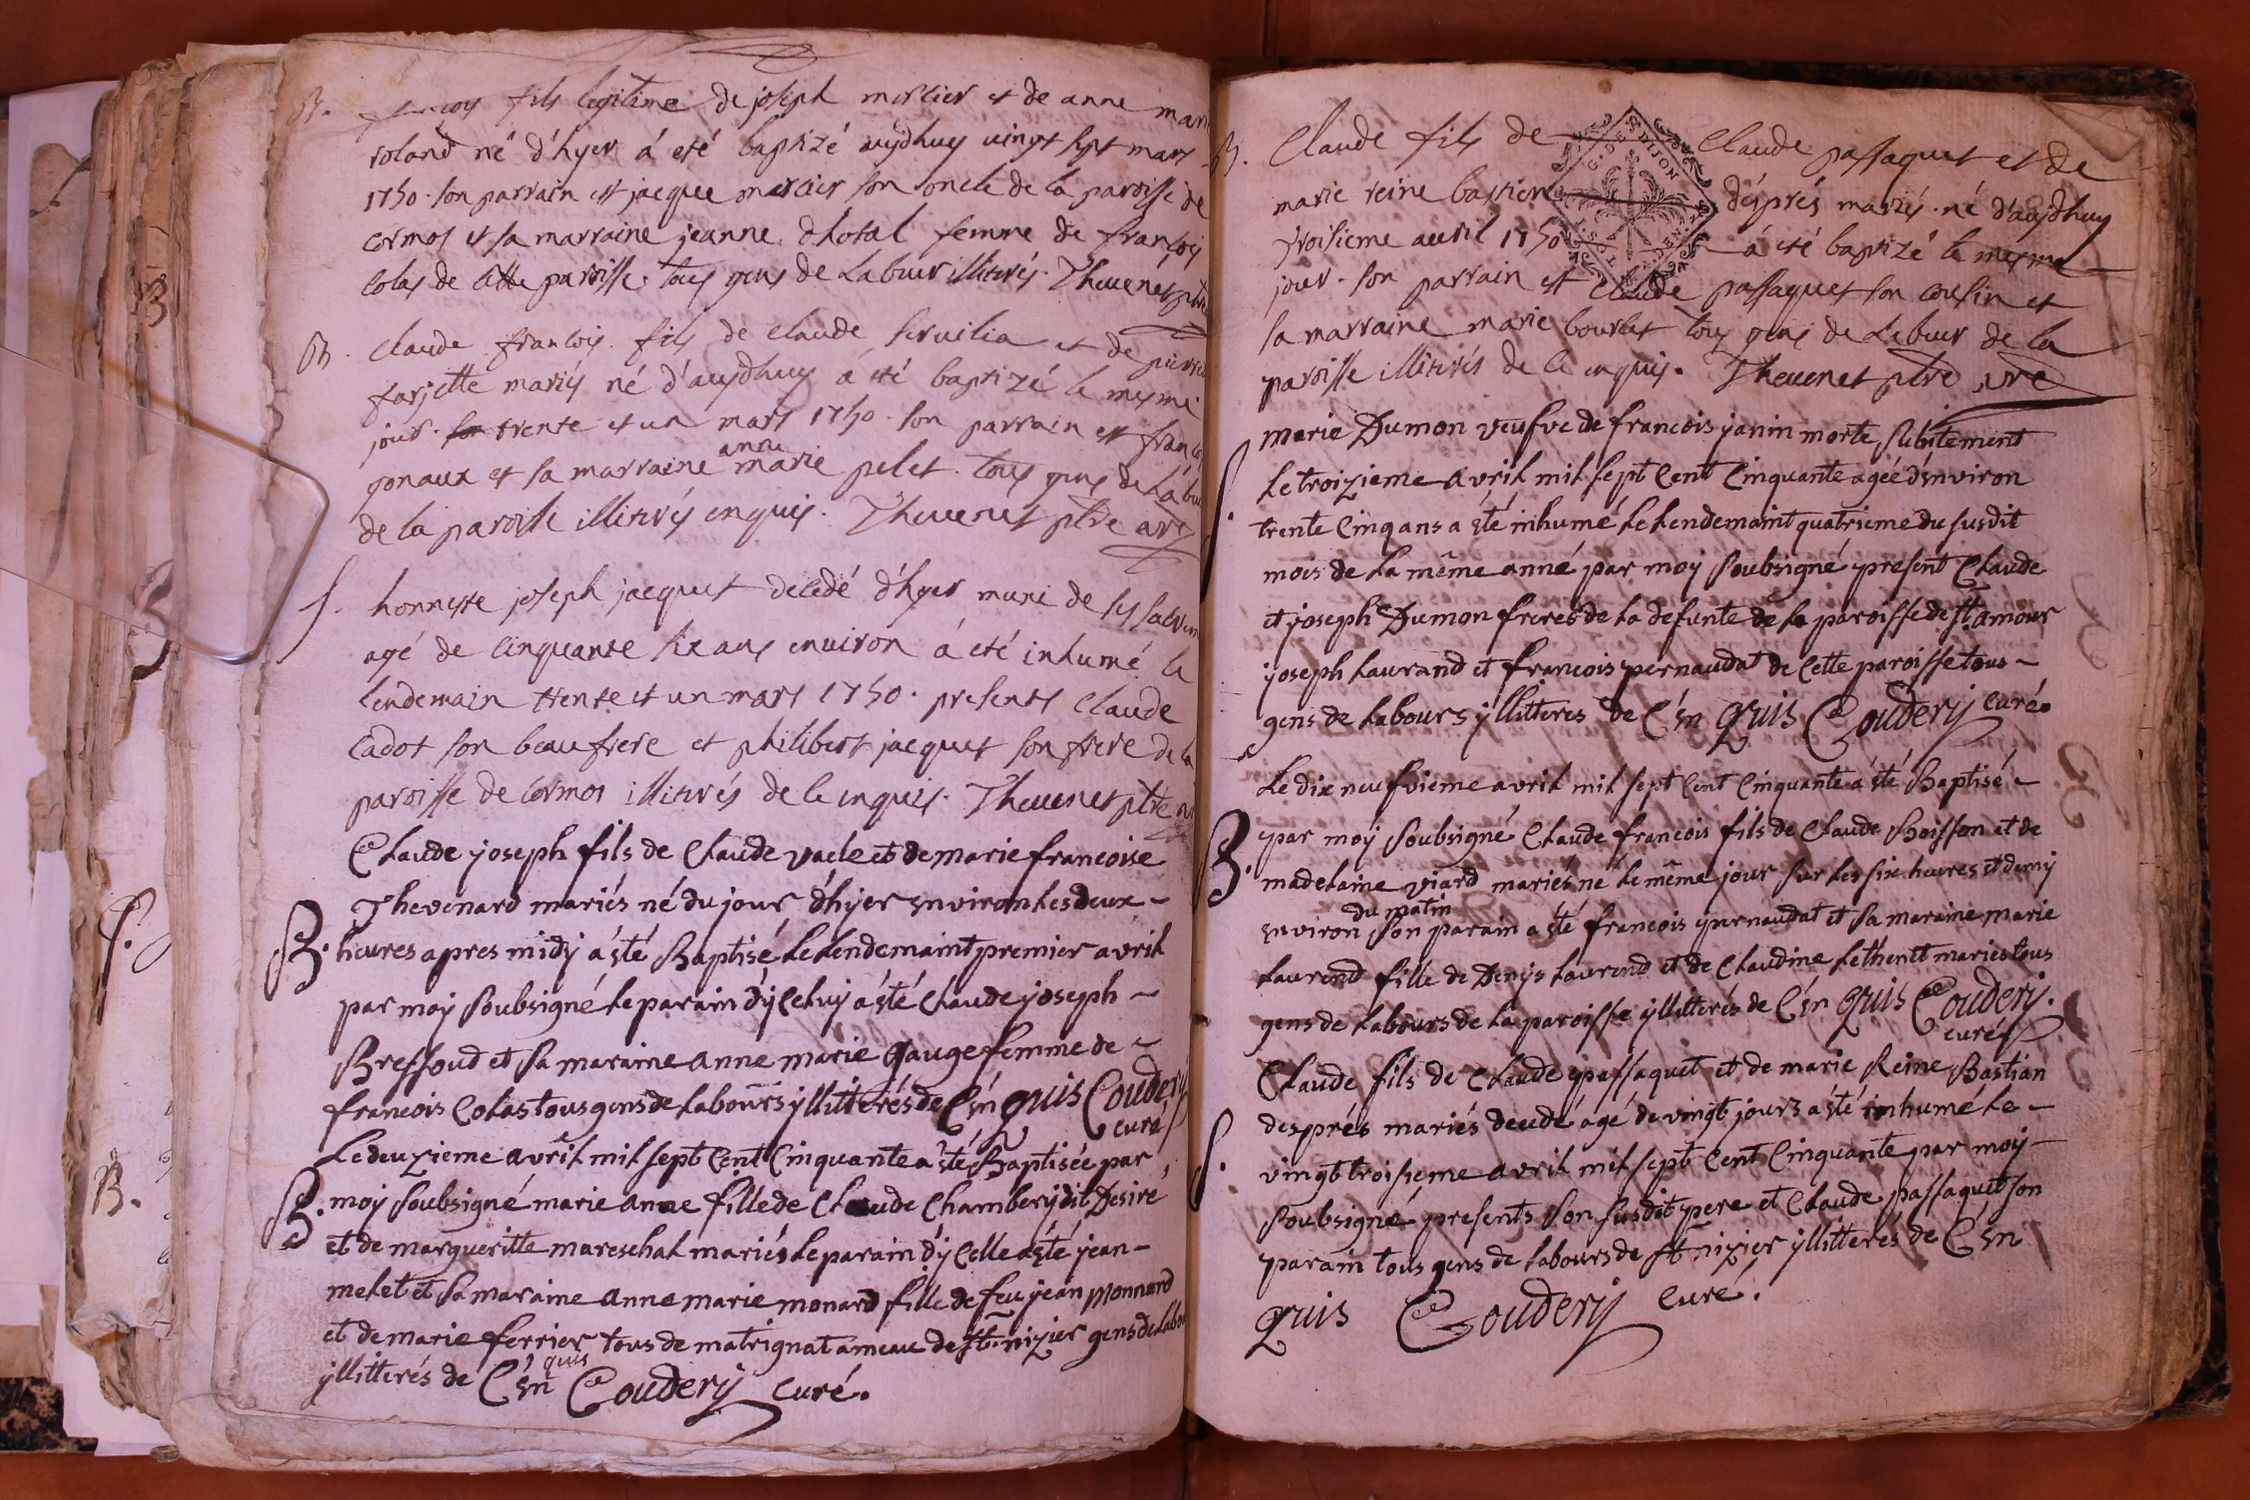 B. fils legitime de joseph mercier et de anne marie
roland né d'hyer á eté baptizé aujdhuy vingt sept mars
1750. son parrain est jacque mercier son oncle de la paroisse de
cormos et sa marraine jeanne dhotal femme de françois
colas de cette paroisse. tous gens de labeur illitirés. Thevenet ptre
B. claude françois fils de claude servilia et de pierrette
farjette mariés né d'aujdhuy á eté baptizé le mesme
jour. trente et un mars 1750. son parrain est françois
anne
gonaux et sa marraine marie pelet. tous gens de labeur
de la paroisse illitirés enquis. Thevenet ptre
S. honneste joseph jacquet decedé d'hyer muni de ses sacrem
agé de cinquante six ans environ á eté inhumé le
lendemain trente et un mars 1750. presents claude
cadot son beaufrere et philibert jacquet son frere de la
paroisse de cormos illitirés de ce enquis. Thevenet ptre
Claude joseph fils de Claude vacle et de marie francoise
Thevenard mariés né du jour d'hyer environ les deux
B. heures apres midy á été Baptisé le lendemaint premier avril
par moy soubsigné le parain d'yceluy á été Claude joseph
Bressoud et sa maraine anne marie gauge femme de
francois Colas tous gens de labours yllitterés de C'en quis Coudery
curé
Le deuzieme avril mil sept Cent Cinquante a été Baptisée par
B. moy soubsigné marie anne fille de Claude Chambery dit Desiré
et de margueritte mareschal mariés le parain d'ycelle a été jean
melet et sa maraine anne marie monard fille de feu jean monnard
et de marie ferrier tous de matrignat ameau de st. nizier gens de labou
quis
yllitterés de C'en Coudery curé.
B. Claude fils de Claude passaquet et de
G. DE DIJON
marie reine bastien désprés mariés. né d'aujdhuy
troisieme avril 1750 á eté baptizé le mesme
jour. son parrain est Claude passaquet son cousin et
sa marraine marie bourlet tous gens de labeur de la
paroisse illitirés de ce enquis. Thevenet ptre
marie Dumon veufve de francois janin morte subitement
S. Le troizieme avril mil sept Cent Cinquante agée d'environ
trente Cinq ans a été inhumé le lendemaint quatrieme du susdit
mois de la même anné par moy soubsigné present Claude
et joseph Dumon freres de la defunte de la paroisse de st. amour
joseph Laurand et francois pernaudat de Cette paroisse tous
gens de labours yllitteres de C'en quis Coudery curé.
Le dix neufvieme avril mil sept Cent Cinquante a été Baptisé
B. par moy soubsigné Claude francois fils de Claude Boisson et de
madelaine viard mariés né le même jour sur les six heures et demy
du matin
environ son parain a été francois purnaudat et sa maraine marie
Laurend fille de Denys Laurend et de Claudine Lethenet mariés tous
gens de labours de la paroisse yllitterés de C'en quis Coudery.
curé
Claude fils de Claude passaquet et de marie Reine Bastian
després mariés decedé agé de vingt jours a été inhumé le
S. vingt troisieme avril mil sept Cent Cinquante par moy
soubsigné presents son susdit pere et Claude passaquet son
parain tous gens de labours de st nizier yllitterés de C'en
quis Coudery curé.